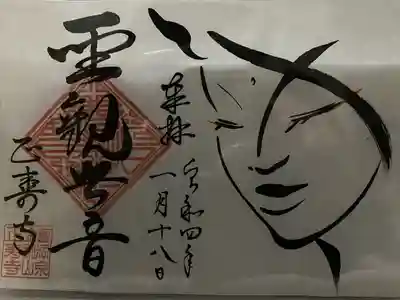 奉拝
令和四年
一月十八日
聖観世音
正寿寺